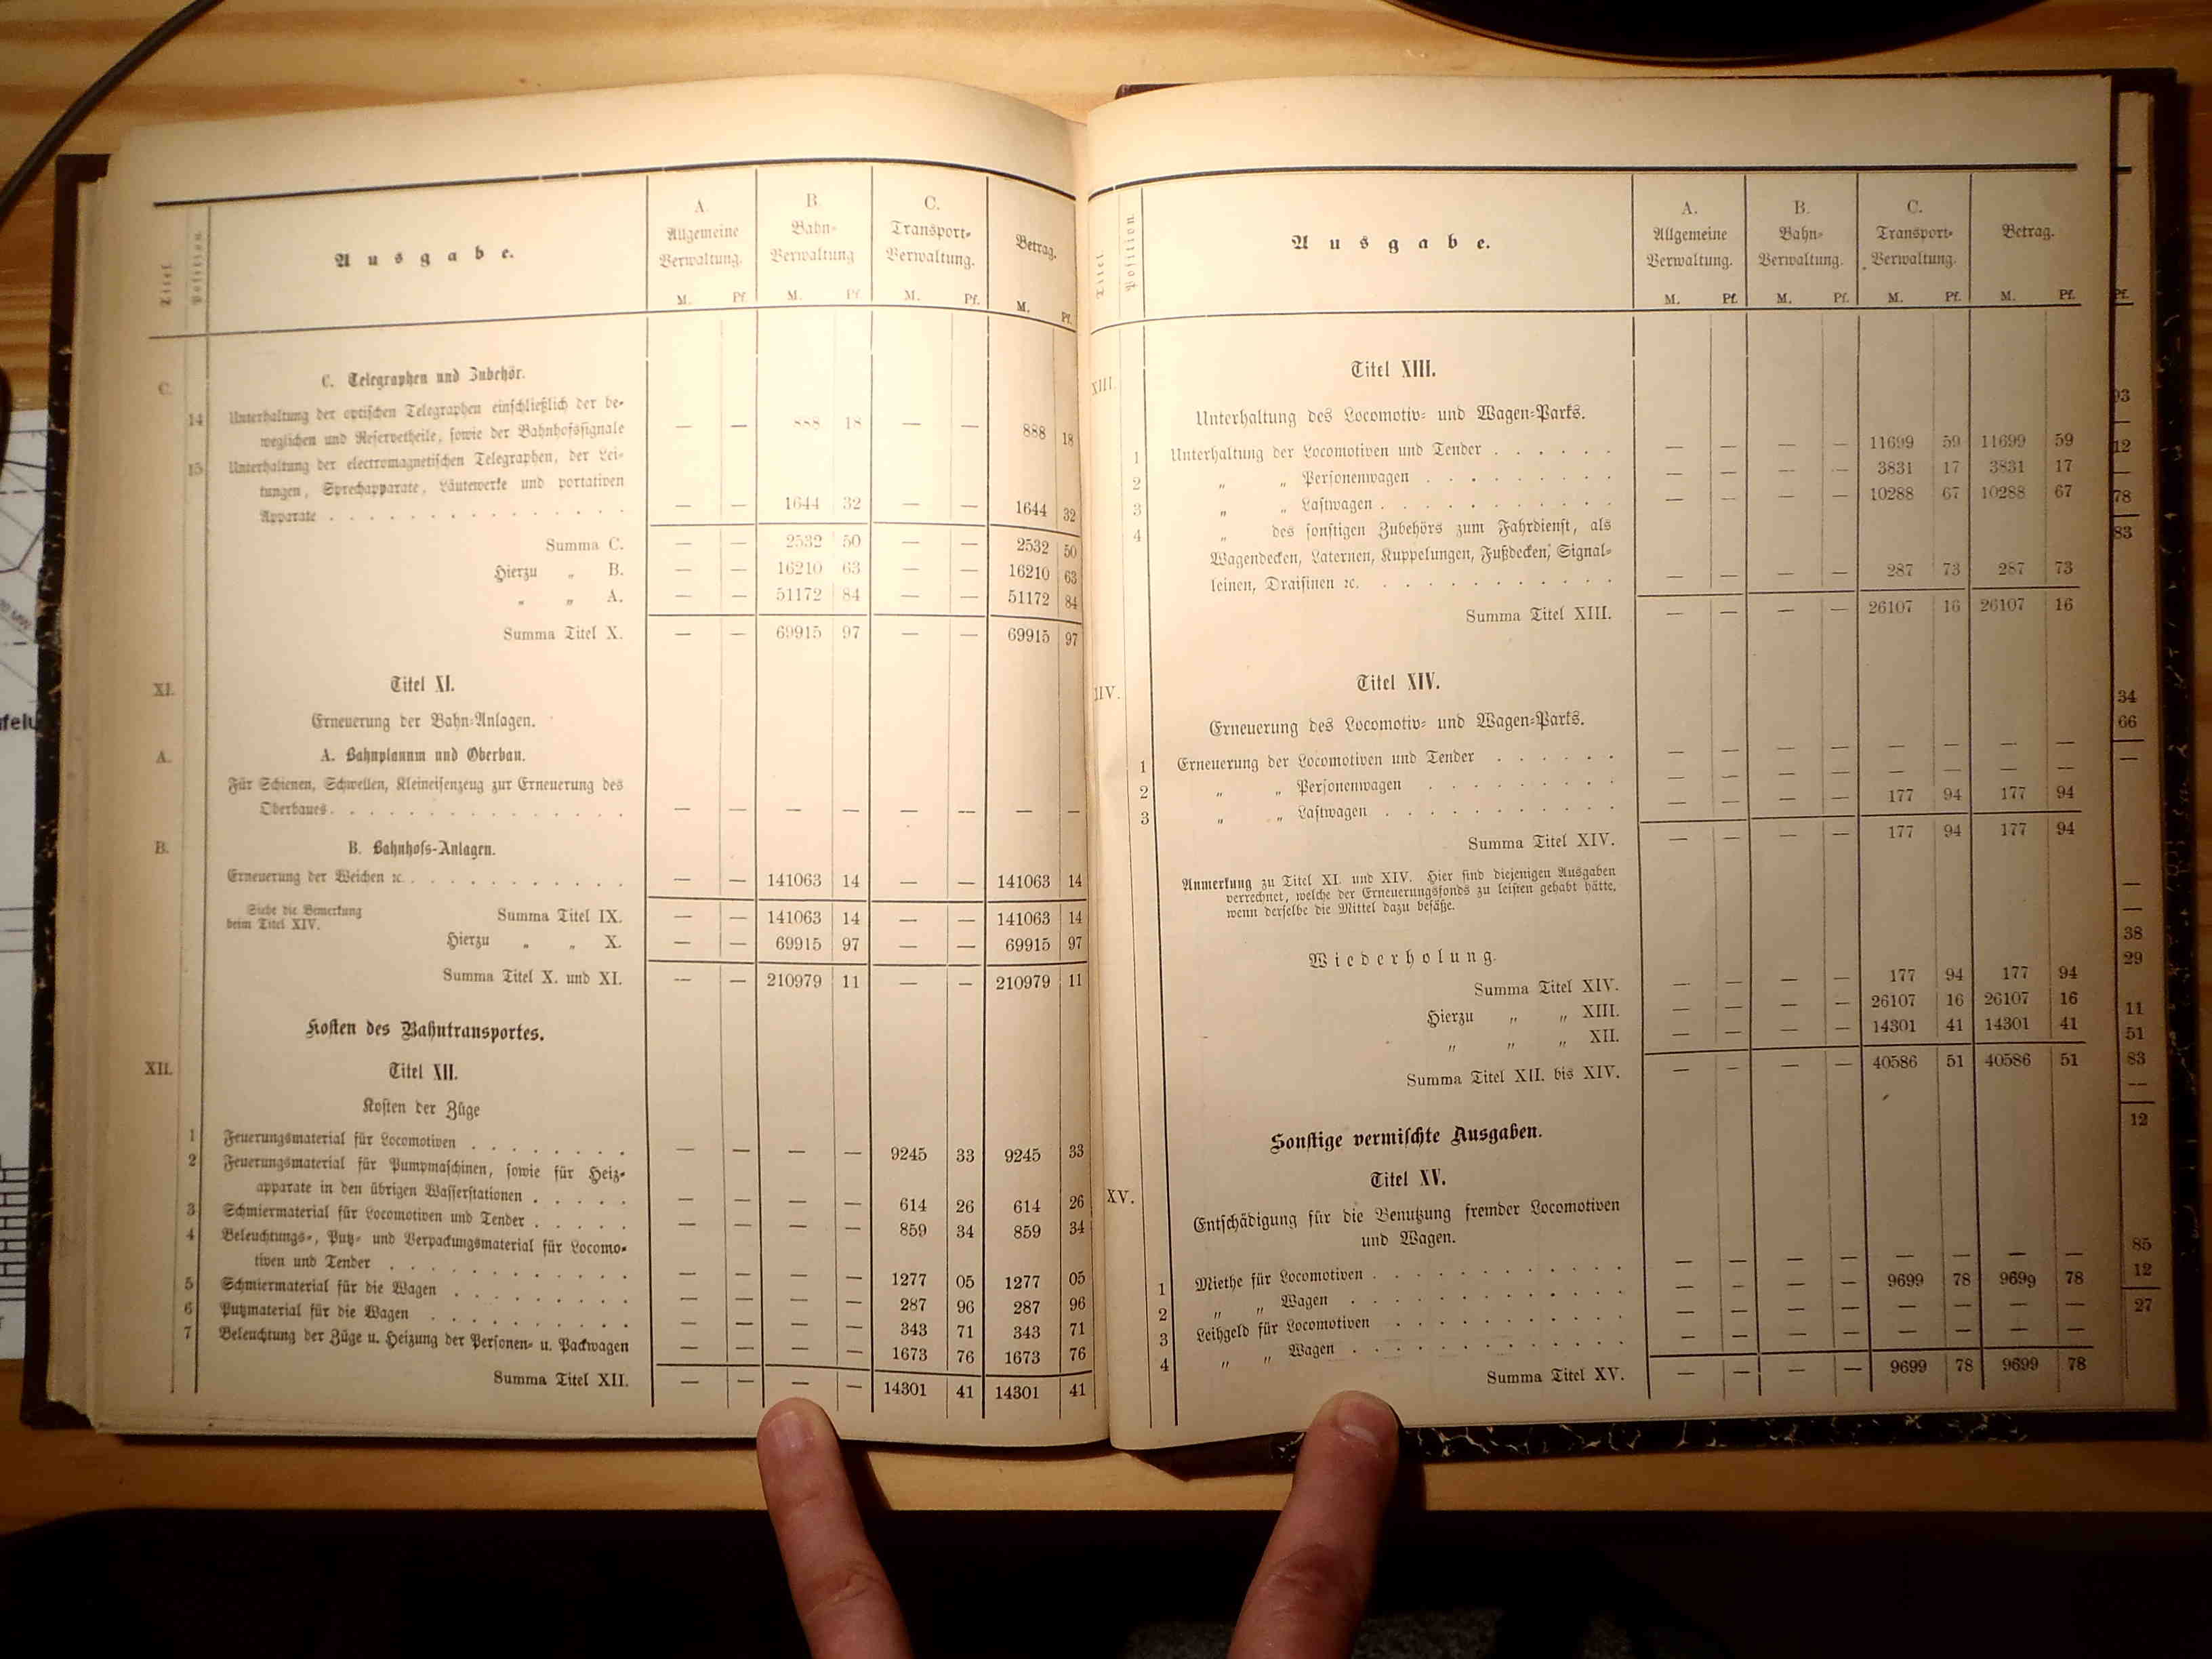 Titel
Position.
Ausgabe.
A.
Allgemeine
Verwaltung.
M. Pf.
B.
Bahn-
Verwaltung
M. Pf.
C.
Transport-
Verwaltung.
M. Pf.
Betrag.
M. Pf.
C. C. Telegraphen und Zubehör.
14 Unterhaltung der optischen Telegraphen einschließlich der be-
weglichen und Reservetheile, sowie der Bahnhofssignale — — 888 18 — — 888 18
15 Unterhaltung der electromagnetischen Telegraphen, der Lei-
tungen, Sprechapparate, Läutewerke und portativen
Apparate . . . . . . . . . . . . . . — — 1644 32 — — 1644 32
Summa C. — — 2532 50 — — 2532 50
Hierzu „ B. — — 16210 63 — — 16210 63
„ „ A. — — 51172 84 — — 51172 84
Summa Titel X. — — 69915 97 — — 69915 97
XI. Titel XI.
Erneuerung der Bahn-Anlagen.
A. A. Bahnplanum und Oberbau.
Für Schienen, Schwellen, Kleineisenzeug zur Erneuerung des
Oberbaues. . . . . . . . . . . . . . — — — — — — — —
B. B. Bahnhofs-Anlagen.
Erneuerung der Weichen ꝛc. . . . . . . . . . . — — 141063 14 — — 141063 14
Siehe die Bemerkung
beim Titel XIV.
Summa Titel IX. — — 141063 14 — — 141063 14
Hierzu „ „ X. — — 69915 97 — — 69915 97
Summa Titel X. und XI. — — 210979 11 — — 210979 11
Kosten des Bahntransportes.
XII. Titel XII.
Kosten der Züge
1 Feuerungsmaterial für Locomotiven . . . . . . . — — — — 9245 33 9245 33
2 Feuerungsmaterial für Pumpmaschinen, sowie für Heiz-
apparate in den übrigen Wasserstationen . . . . . — — — — 614 26 614 26
3 Schmiermaterial für Locomotiven und Tender . . . . . — — — — 859 34 859 34
4 Beleuchtungs-, Putz- und Verpackungsmaterial für Locomo-
tiven und Tender . . . . . . . . . . . — — — — 1277 05 1277 05
5 Schmiermaterial für die Wagen . . . . . . . . — — — — 287 96 287 96
6 Putzmaterial für die Wagen . . . . . . . . . — — — — 343 71 343 71
7 Beleuchtung der Züge u. Heizung der Personen- u. Packwagen — — — — 1673 76 1673 76
Summa Titel XII. — — — — 14301 41 14301 41
Titel
Position.
Ausgabe.
A.
Allgemeine
Verwaltung.
M. Pf.
B.
Bahn-
Verwaltung.
M. Pf.
C.
Transport-
Verwaltung.
M. Pf.
Betrag.
M. Pf.
XIII. Titel XIII.
Unterhaltung des Locomotiv- und Wagen-Parks.
1 Unterhaltung der Locomotiven und Tender . . . . . . — — — — 11699 59 11699 59
2 „ „ Personenwagen . . . . . . . . . — — — — 3831 17 3831 17
3 „ „ Lastwagen . . . . . . . . . . . — — — — 10288 67 10288 67
4 „ des sonstigen Zubehörs zum Fahrdienst, als
Wagendecken, Laternen, Kuppelungen, Fußdecken, Signal-
leinen, Draisinen ꝛc. . . . . . . . . . . — — — — 287 73 287 73
Summa Titel XIII. — — — — 26107 16 26107 16
XIV. Titel XIV.
Erneuerung des Locomotiv- und Wagen-Parks.
1 Erneuerung der Locomotiven und Tender . . . . . . — — — — — — — —
2 „ „ Personenwagen . . . . . . . . . — — — — — — — —
3 „ „ Lastwagen . . . . . . . . . . . — — — — 177 94 177 94
Summa Titel XIV. — — — — 177 94 177 94
Anmerkung zu Titel XI. und XIV. Hier sind diejenigen Ausgaben
verrechnet, welche der Erneuerungsfonds zu leisten gehabt hätte,
wenn derselbe die Mittel dazu besäße.
Wiederholung.
Summa Titel XIV. — — — — 177 94 177 94
Hierzu „ „ XIII. — — — — 26107 16 26107 16
„ „ „ XII. — — — — 14301 41 14301 41
Summa Titel XII. bis XIV. — — — — 40586 51 40586 51
Sonstige vermischte Ausgaben.
XV. Titel XV.
Entschädigung für die Benutzung fremder Locomotiven
und Wagen.
1 Miethe für Locomotiven . . . . . . . . . . . — — — — — — — —
2 „ „ Wagen . . . . . . . . . . . . — — — — 9699 78 9699 78
3 Leihgeld für Locomotiven . . . . . . . . . . — — — — — — — —
4 „ „ Wagen . . . . . . . . . . . . — — — — — — — —
Summa Titel XV. — — — — 9699 78 9699 78
Pf.
93
12
78
83
34
66
38
29
11
51
83
12
85
12
27